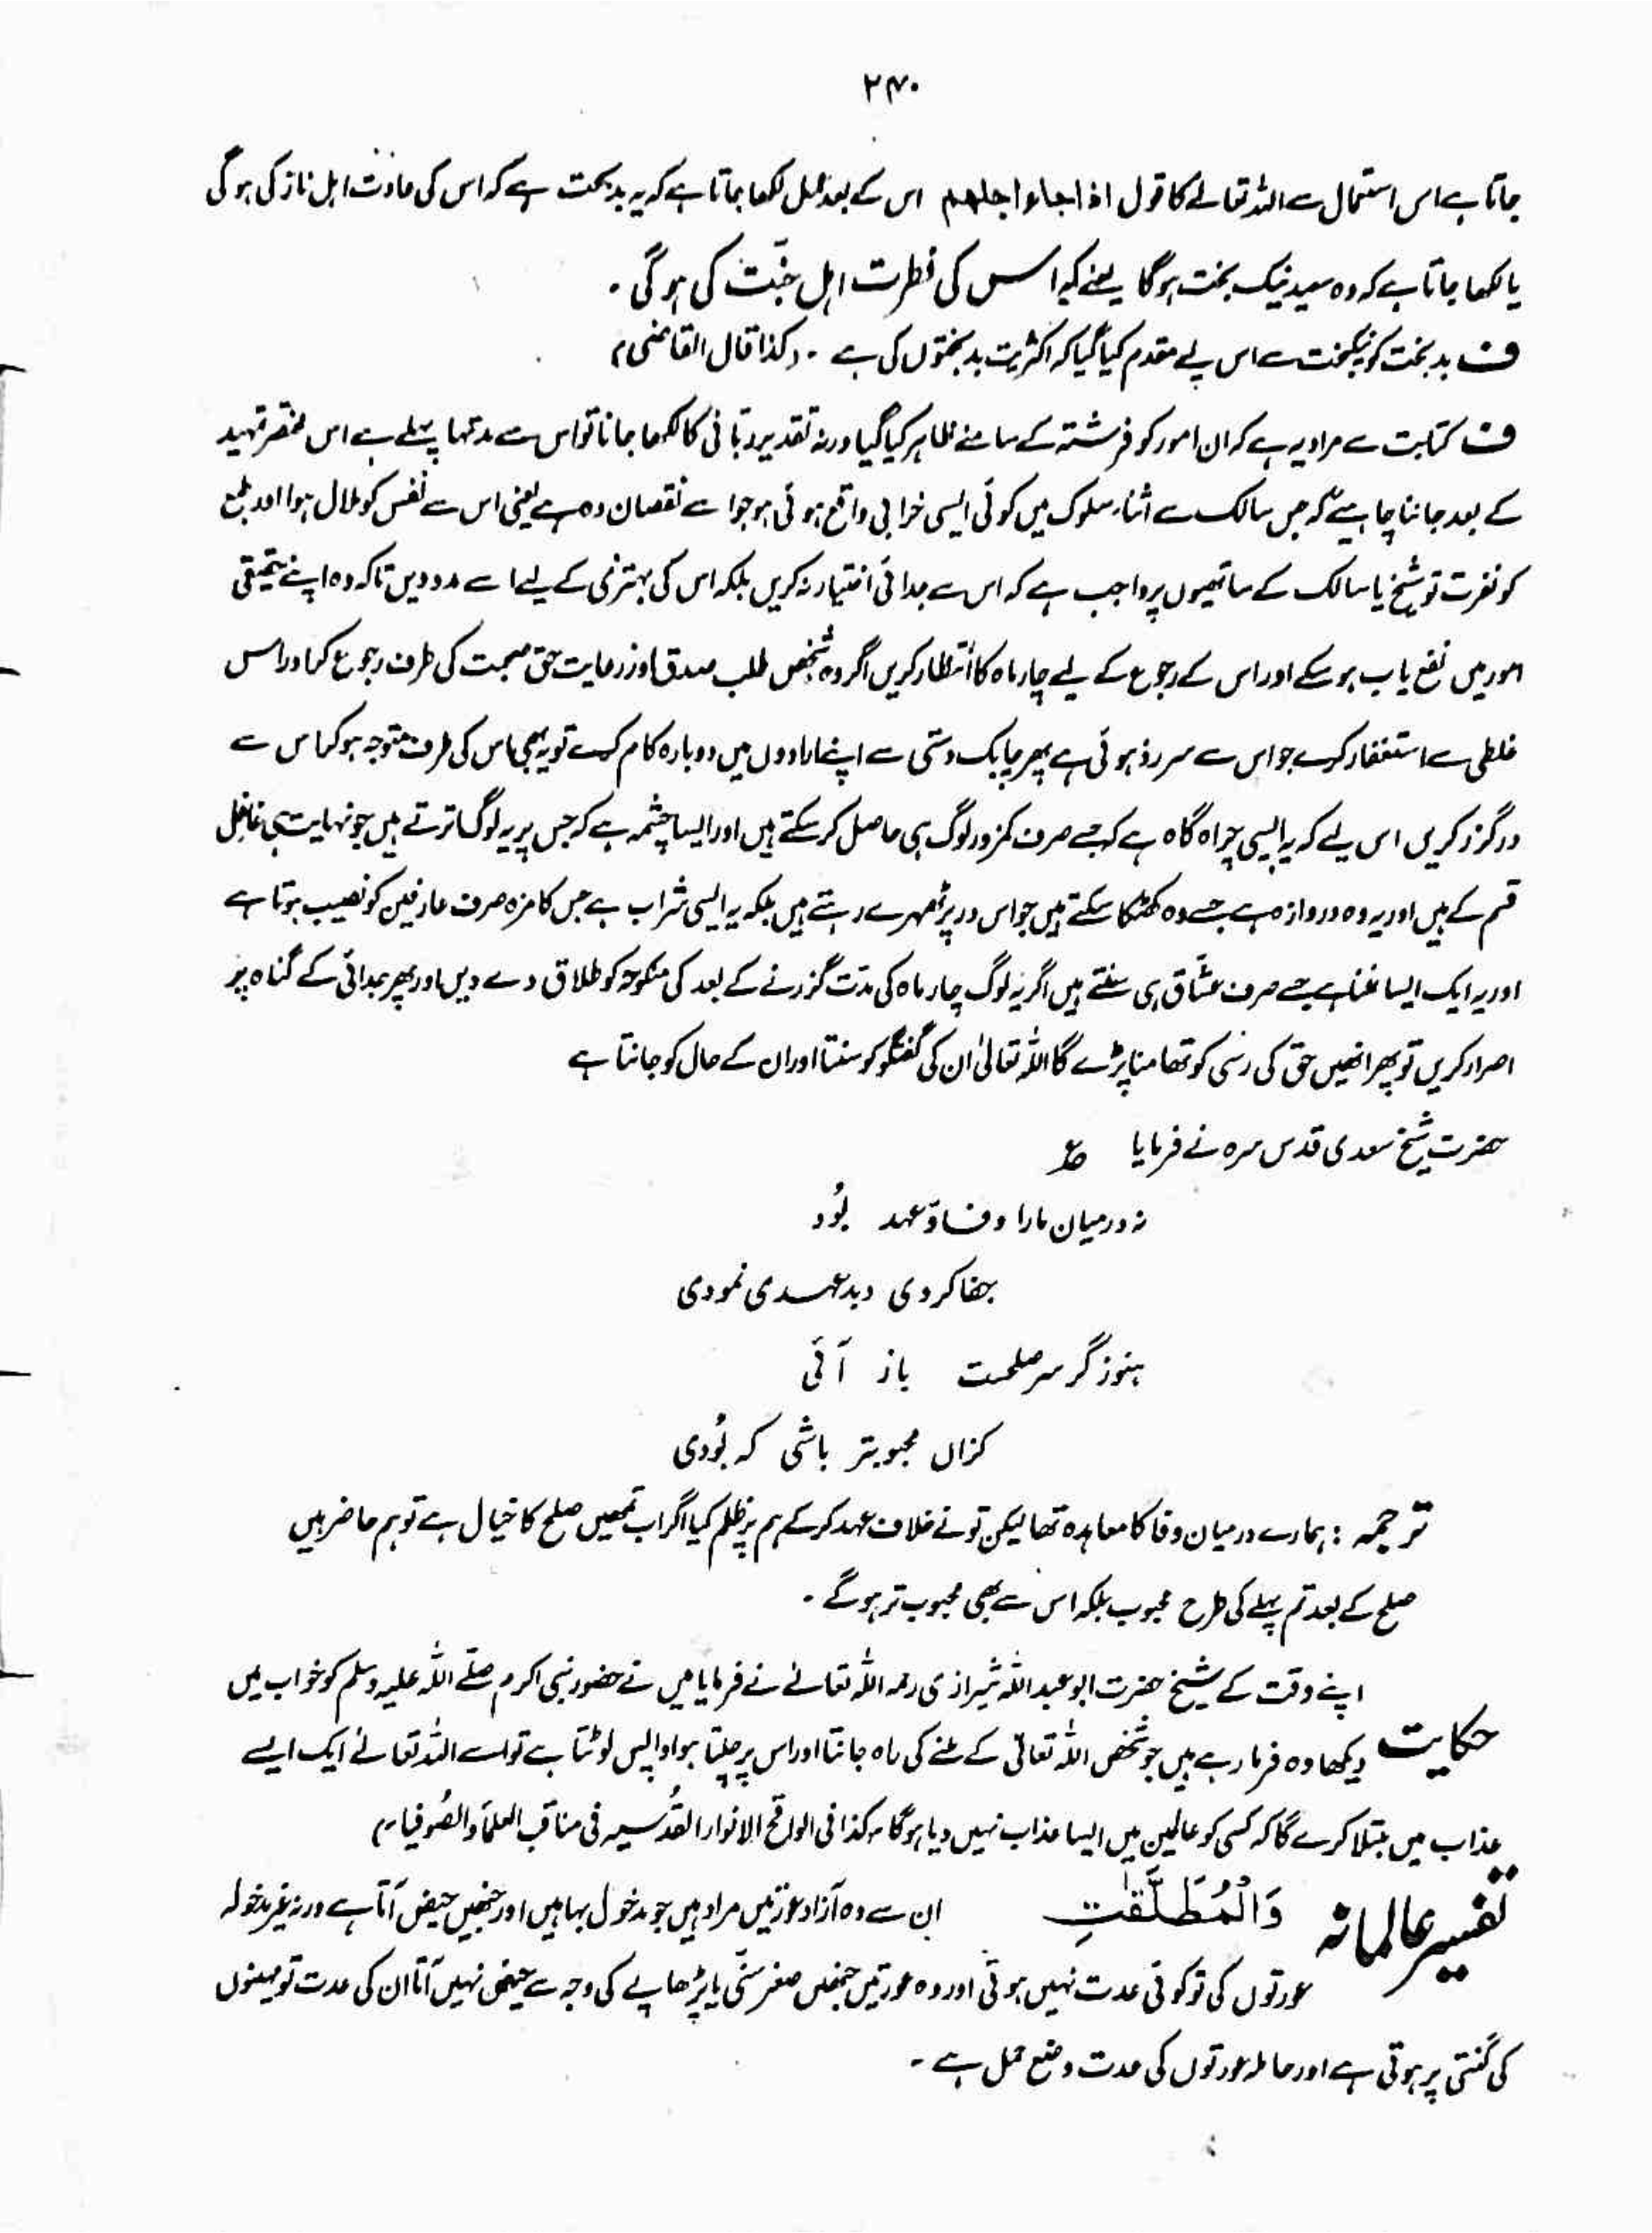 ۲۴۰
جاتا ہے اس استعمال سے اللہ تعالےٰ کا قول اذا جاء اجلهم اس کے بعد عمل لکھا جاتا ہے کہ یہ بدبخت ہے کہ اس کی عادت اہل نار کی ہوگی
یا لکھا جاتا ہے کہ وہ سعید نیک بخت ہوگا یعنے کہ اس کی فطرت اہل جنّت کی ہوگی ۔
ف بدبخت کو نیکبخت سے اس لیے مقدم کیا گیا کہ اکثریت بدبختوں کی ہے ۔ (کذا قال القاضی)
ف کتابت سے مراد یہ ہے کہ ان امور کو فرشتہ کے سامنے ظاہر کیا گیا ورنہ تقدیر ربّانی کا لکھا جانا تو اس سے مدتہا پہلے ہے اس مختصر تمہید
کے بعد جاننا چاہیئے کہ جس سالک سے اثناء سلوک میں کوئی ایسی خرابی واقع ہوئی ہو جو اسے نقصان دہ ہے یعنی اس سے نفس کو ملال ہوا اور طبع
کو نفرت تو شیخ یا سالک کے ساتھیوں پر واجب ہے کہ اس سے جدائی اختیار نہ کریں بلکہ اس کی بہتری کے لیے اسے مدد دیں تاکہ وہ اپنے حقیقی
امور میں نفع یاب ہو سکے اور اس کے رجوع کے لیے چار ماہ کا انتظار کریں اگر وہ شخص طلب صدق اور رعایت حق صحبت کی طرف رجوع کر اور اس
غلطی سے استغفار کرے جو اس سے سرزد ہوئی ہے پھر چابک دستی سے اپنے ارادوں میں دوبارہ کام کرے تو یہ بھی اس کی طرف متوجہ ہو کر اس سے
درگزر کریں اس لیے کہ یہ ایسی چراہ گاہ ہے کہ جسے صرف کمزور لوگ ہی حاصل کر سکتے ہیں اور ایسا چشمہ ہے کہ جس پر یہ لوگ اترتے ہیں جو نہایت ہی غافل
قسم کے ہیں اور یہ وہ دروازہ ہے جسے وہ کھٹکا سکتے ہیں جو اس در پر ٹھہرے رہتے ہیں بلکہ یہ ایسی شراب ہے جس کا مزہ صرف عارفین کو نصیب ہوتا ہے
اور یہ ایک ایسا غنا ہے جسے صرف عشّاق ہی سنتے ہیں اگر یہ لوگ چار ماہ کی مدّت گزرنے کے بعد کی منکوحہ کو طلاق دے دیں اور پھر جدائی کے گناہ پر
اصرار کریں تو پھر انھیں حق کی رسی کو تھامنا پڑے گا اللہ تعالیٰ ان کی گفتگو کو سنتا اور ان کے حال کو جانتا ہے
حضرت شیخ سعدی قدس سرہ نے فرمایا ؏
نہ درمیان مارا وفا وَ عہد بُود
جفا کردی و بدعہدی نمودی
ہنوز گر سر صلحت باز آئی
کزاں محبوبتر باشی کہ بُودی
ترجمہ : ہمارے درمیان وفا کا معاہدہ تھا لیکن تو نے خلاف عہد کر کے ہم پر ظلم کیا اگر اب تمھیں صلح کا خیال ہے تو ہم حاضر ہیں
صلح کے بعد تم پہلے کی طرح محبوب بلکہ اس سے بھی محبوب تر ہوگے ۔
اپنے وقت کے شیخ حضرت ابو عبد اللہ شیرازی رحمہ اللہ تعالےٰ نے فرمایا میں نے حضور نبی اکرم صلّے اللہ علیہ وسلم کو خواب میں
حکایت دیکھا وہ فرما رہے ہیں جو شخص اللہ تعالیٰ کے ملنے کی راہ جانتا اور اس پر چلتا ہوا واپس لوٹتا ہے تو اسے اللہ تعالےٰ ایک ایسے
عذاب میں مبتلا کرے گا کہ کسی کو عالمین میں ایسا عذاب نہیں دیا ہوگا (کذا فی الواقح الانوار القُدسیہ فی مناقب العلماَ والصُوفیاء)
تفسیر عالمانہ وَالْمُطَلَّقٰتِ ان سے وہ آزاد عورتیں مراد ہیں جو مدخول بہا ہیں اور جنھیں حیض آتا ہے ورنہ غیر مدخولہ
عورتوں کی تو کوئی عدت نہیں ہوتی اور وہ عورتیں جنھیں صغر سنّی یا بڑھاپے کی وجہ سے حیض نہیں آتا ان کی عدت تو مہینوں
کی گنتی پر ہوتی ہے اور حاملہ عورتوں کی عدت وضع حمل ہے ۔